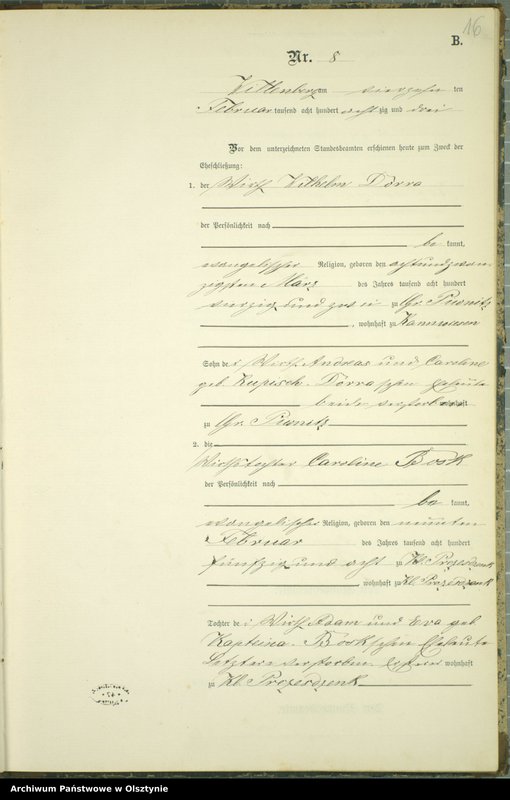 16
B.
Nr. 8
Wittenberg am vierzehn ten
Februar tausend acht hundert acht zig und drei
Vor dem unterzeichneten Standesbeamten erschienen heute zum Zweck der
Eheschließung:
1. der Wirth Wilhelm Dorra
der Persönlichkeit nach
be kannt,
evangelischer Religion, geboren den achtundzwan
zigsten März des Jahres tausend acht hundert
vierzig und zwei zu Gr. Piwnitz
, wohnhaft zu
Sohn des Wirth Andreas und Caroline
geb. Kupisch Dorra'schen Eheleute
beide verstorben wohnhaft
zu Gr. Piwnitz
2. die
Wirthstochter Caroline Bosk
der Persönlichkeit nach
be kannt,
evangelischer Religion, geboren den neunten
Februar des Jahres tausend acht hundert
fünfzig und acht zu Kl. Przesdzenk
, wohnhaft zu Kl. Przesdzenk
Tochter des Wirth Adam und Eva geb
Kapteina Bosk'schen Eheleute
Letztere verstorben Erstere wohnhaft
zu Kl. Przesdzenk
Archiwum Państwowe w Olsztynie